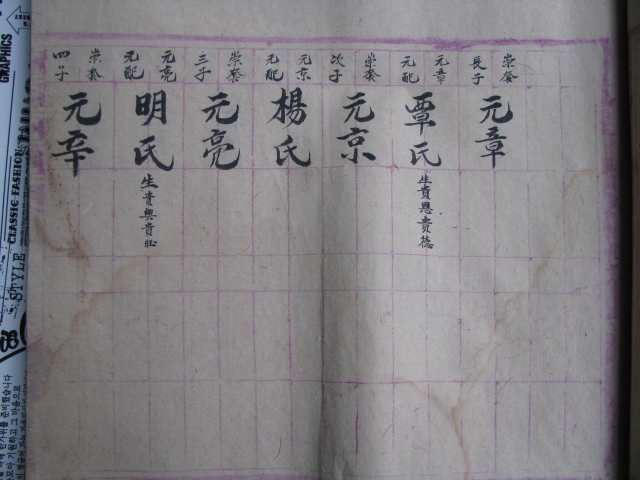 崇發
長子
元章
元章
元配
覃氏
生貴恩貴德
崇發
次子
元京
元京
元配
楊氏
崇發
三子
元亮
元亮
元配
明氏
生貴興貴旺
崇發
四子
元辛
GRAPHICS
CLASSIC FASHION
STYLE